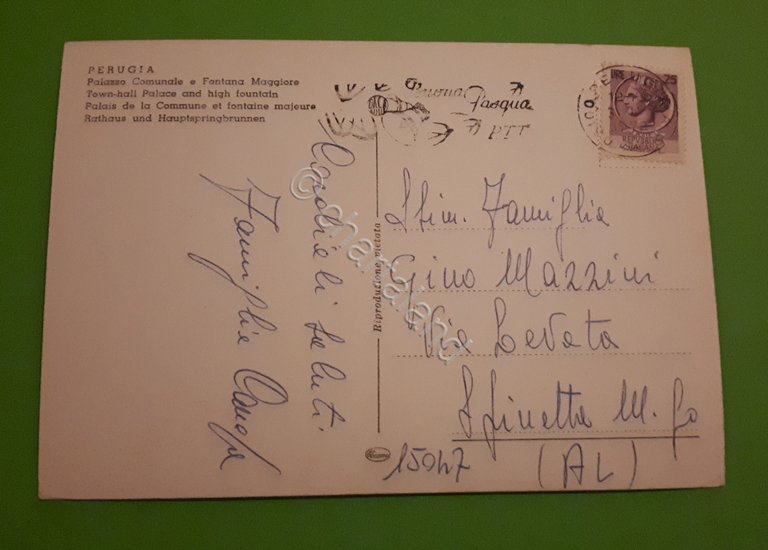 PERUGIA
Palazzo Comunale e Fontana Maggiore
Town-hall Palace and high fountain
Palais de la Commune et fontaine majeure
Rathaus und Hauptspringbrunnen
Buona
Pasqua
PTT
LIRE 25
REPVBBLICA
ITALIANA
Cordiali saluti
Famiglia
Riproduzione vietata
Stim. Famiglia
Gino Mazzini
Via Levata
Spinetta M. go
(AL)
15047